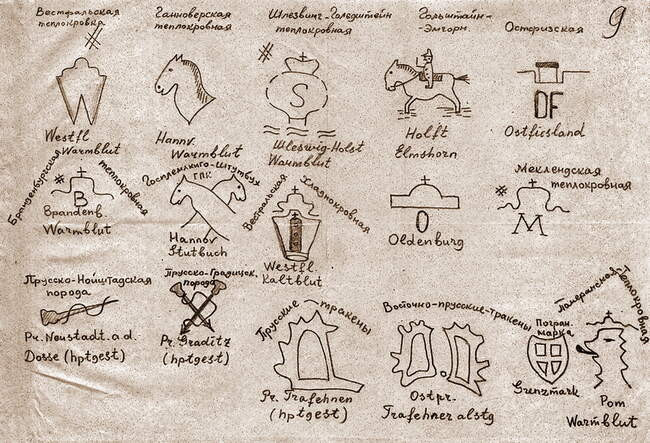 Вестфальская теплокровка
Ганноверская теплокровная
Шлезвинг-Голдштейн теплокровная
Гольштайн-Эмгорн.
Остфризская
9
Westfl Warmblut
Hannv. Warmblut
S
Шleswig-Holst Warmblut
Holft Elmshorn
OF
Ostfiesland
Бранденбургская теплокровная
B
Брandenв. Warmblut
Госплемкниго-Штутбух ГПК
Hannov Stutbuch
Вестфальская Хладнокровная
Westfl. Kaltblut
O
Oldenburg
Меклендская теплокровная
M
Прусско-Нойштадская порода
Pr. Neustadt. a.d. Dosse (hptgest)
Прусско-Градицск. порода
Pr. Graditz (hptgest)
Прусские-тракены
Pr. Trafehnen (hptgest)
Восточно-прусские-тракены
Ostpr. Trafehner alstg
Погран. марка
Grenzmark
Померанская-Теплокровная
Pom Warmblut